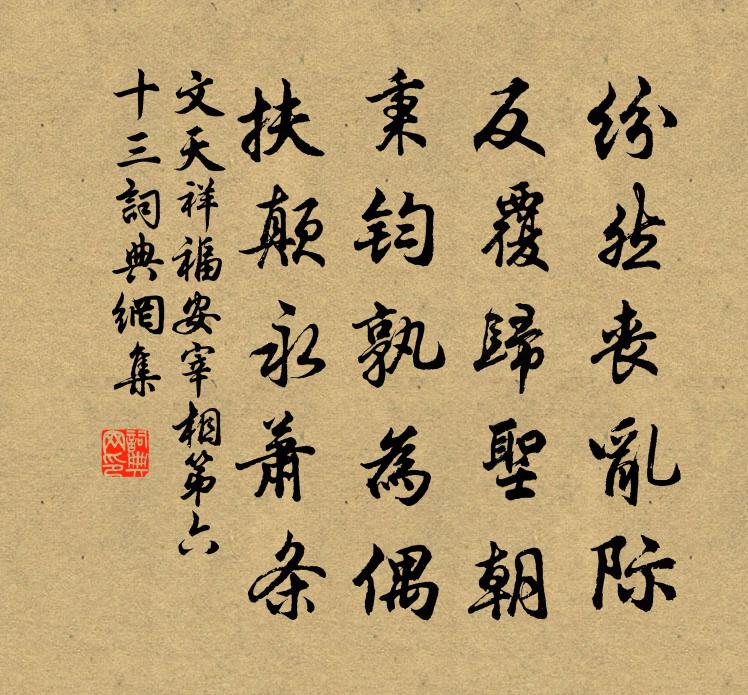 纷然丧亂际
反覆歸聖朝
秉钧孰為偶
扶颠永萧条
文天祥福安宰相第六
十三詞典網集
詞典
网印